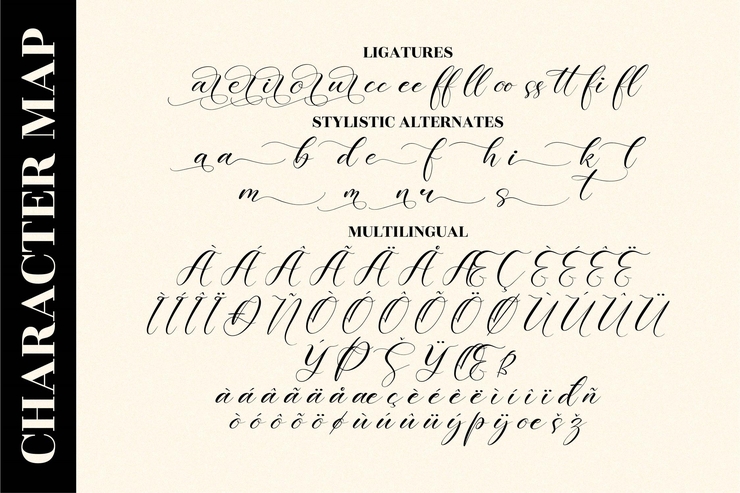 CHARACTER MAP
LIGATURES
ar er ir or ur cc ee ff ll oo ss tt fi fl
STYLISTIC ALTERNATES
a a b d e f h i k l
m m n r s t
MULTILINGUAL
À Á Â Ã Ä Å Æ Ç È É Ê Ë
Ì Í Î Ï Ð Ñ Ò Ó Ô Õ Ö Ø Ù Ú Û Ü
Ý Þ Š Ÿ Œ ß
à á â ã ä å æ ç è é ê ë ì í î ï đ ñ
ò ó ô õ ö ø ù ú û ü ý þ ÿ œ š ž